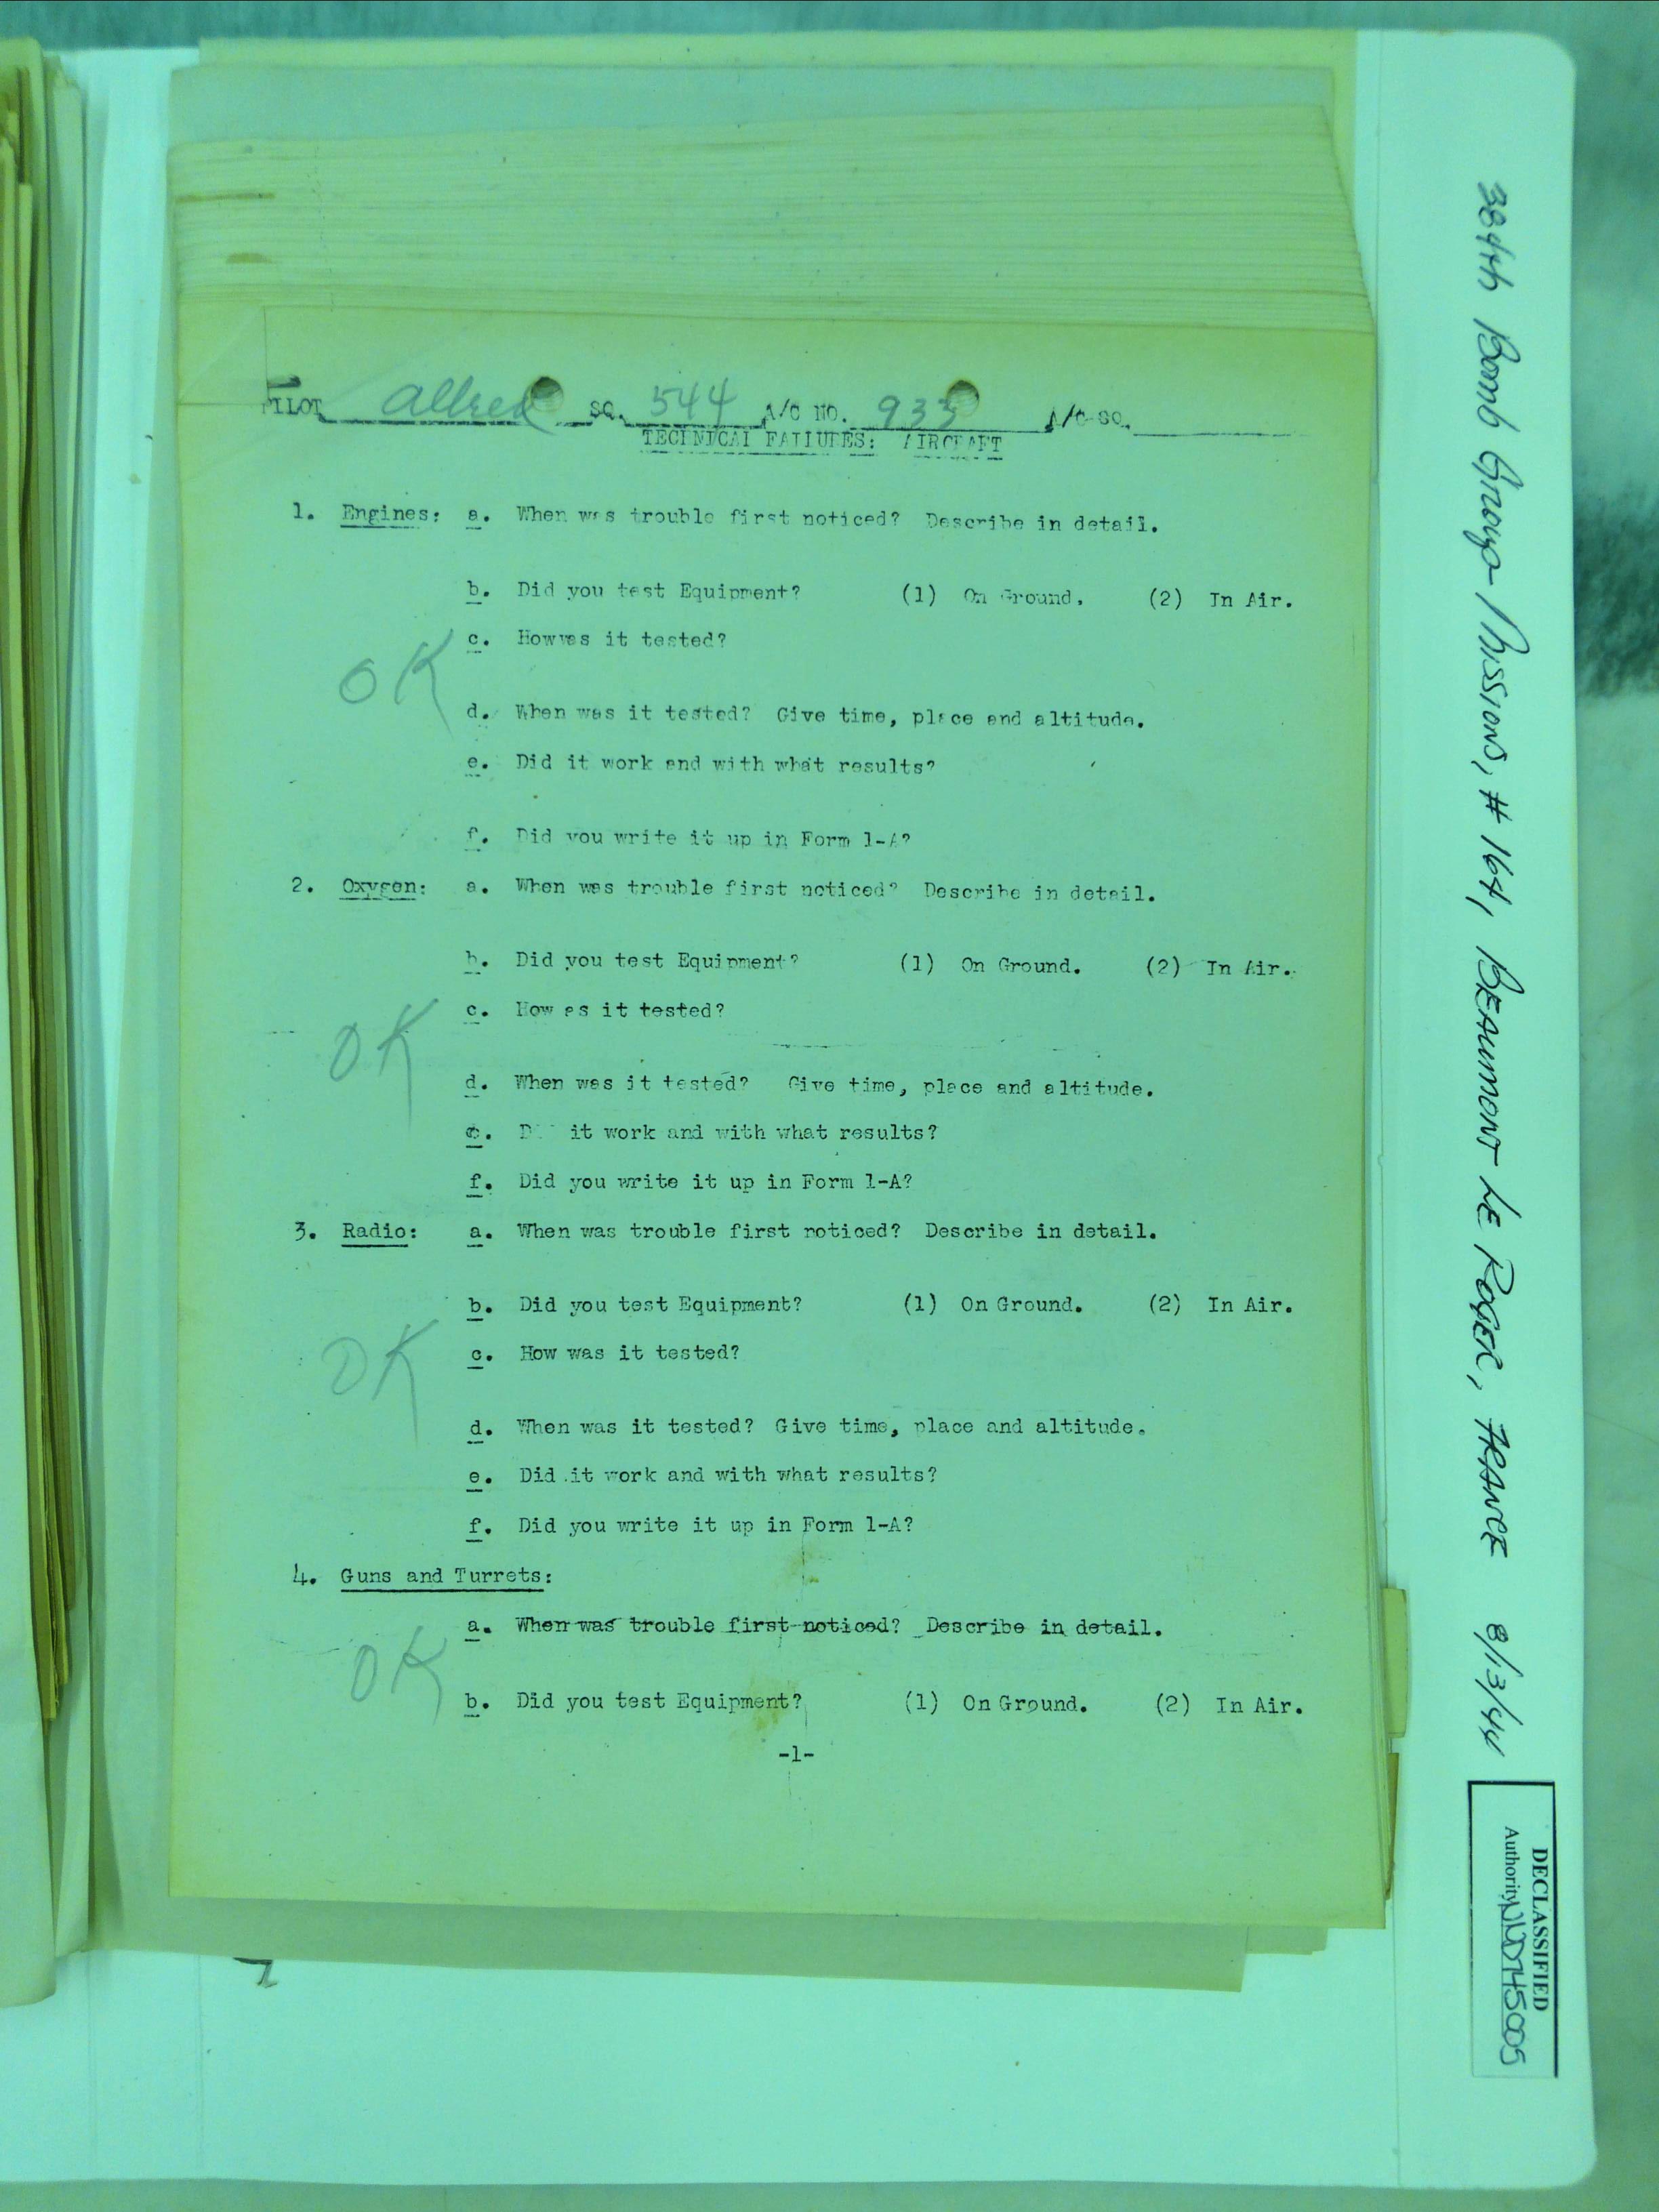 PILOT Allred SQ. 544 A/C NO. 933 A/C SQ.
TECHNICAL FAILURES: AIRCRAFT
1. Engines: a. When was trouble first noticed? Describe in detail.
b. Did you test Equipment? (1) On Ground. (2) In Air.
c. How was it tested?
OK
d. When was it tested? Give time, place and altitude.
e. Did it work and with what results?
f. Did you write it up in Form 1-A?
2. Oxygen: a. When was trouble first noticed? Describe in detail.
b. Did you test Equipment? (1) On Ground. (2) In Air.
c. How as it tested?
OK
d. When was it tested? Give time, place and altitude.
e. D it work and with what results?
f. Did you write it up in Form 1-A?
3. Radio: a. When was trouble first noticed? Describe in detail.
b. Did you test Equipment? (1) On Ground. (2) In Air.
OK
c. How was it tested?
d. When was it tested? Give time, place and altitude.
e. Did it work and with what results?
f. Did you write it up in Form 1-A?
4. Guns and Turrets:
a. When was trouble first noticed? Describe in detail.
OK
b. Did you test Equipment? (1) On Ground. (2) In Air.
-1-
384th Bomb Group Missions, # 164, BEAUMONT LE ROGER, FRANCE 8/13/44
DECLASSIFIED
Authority NND745005